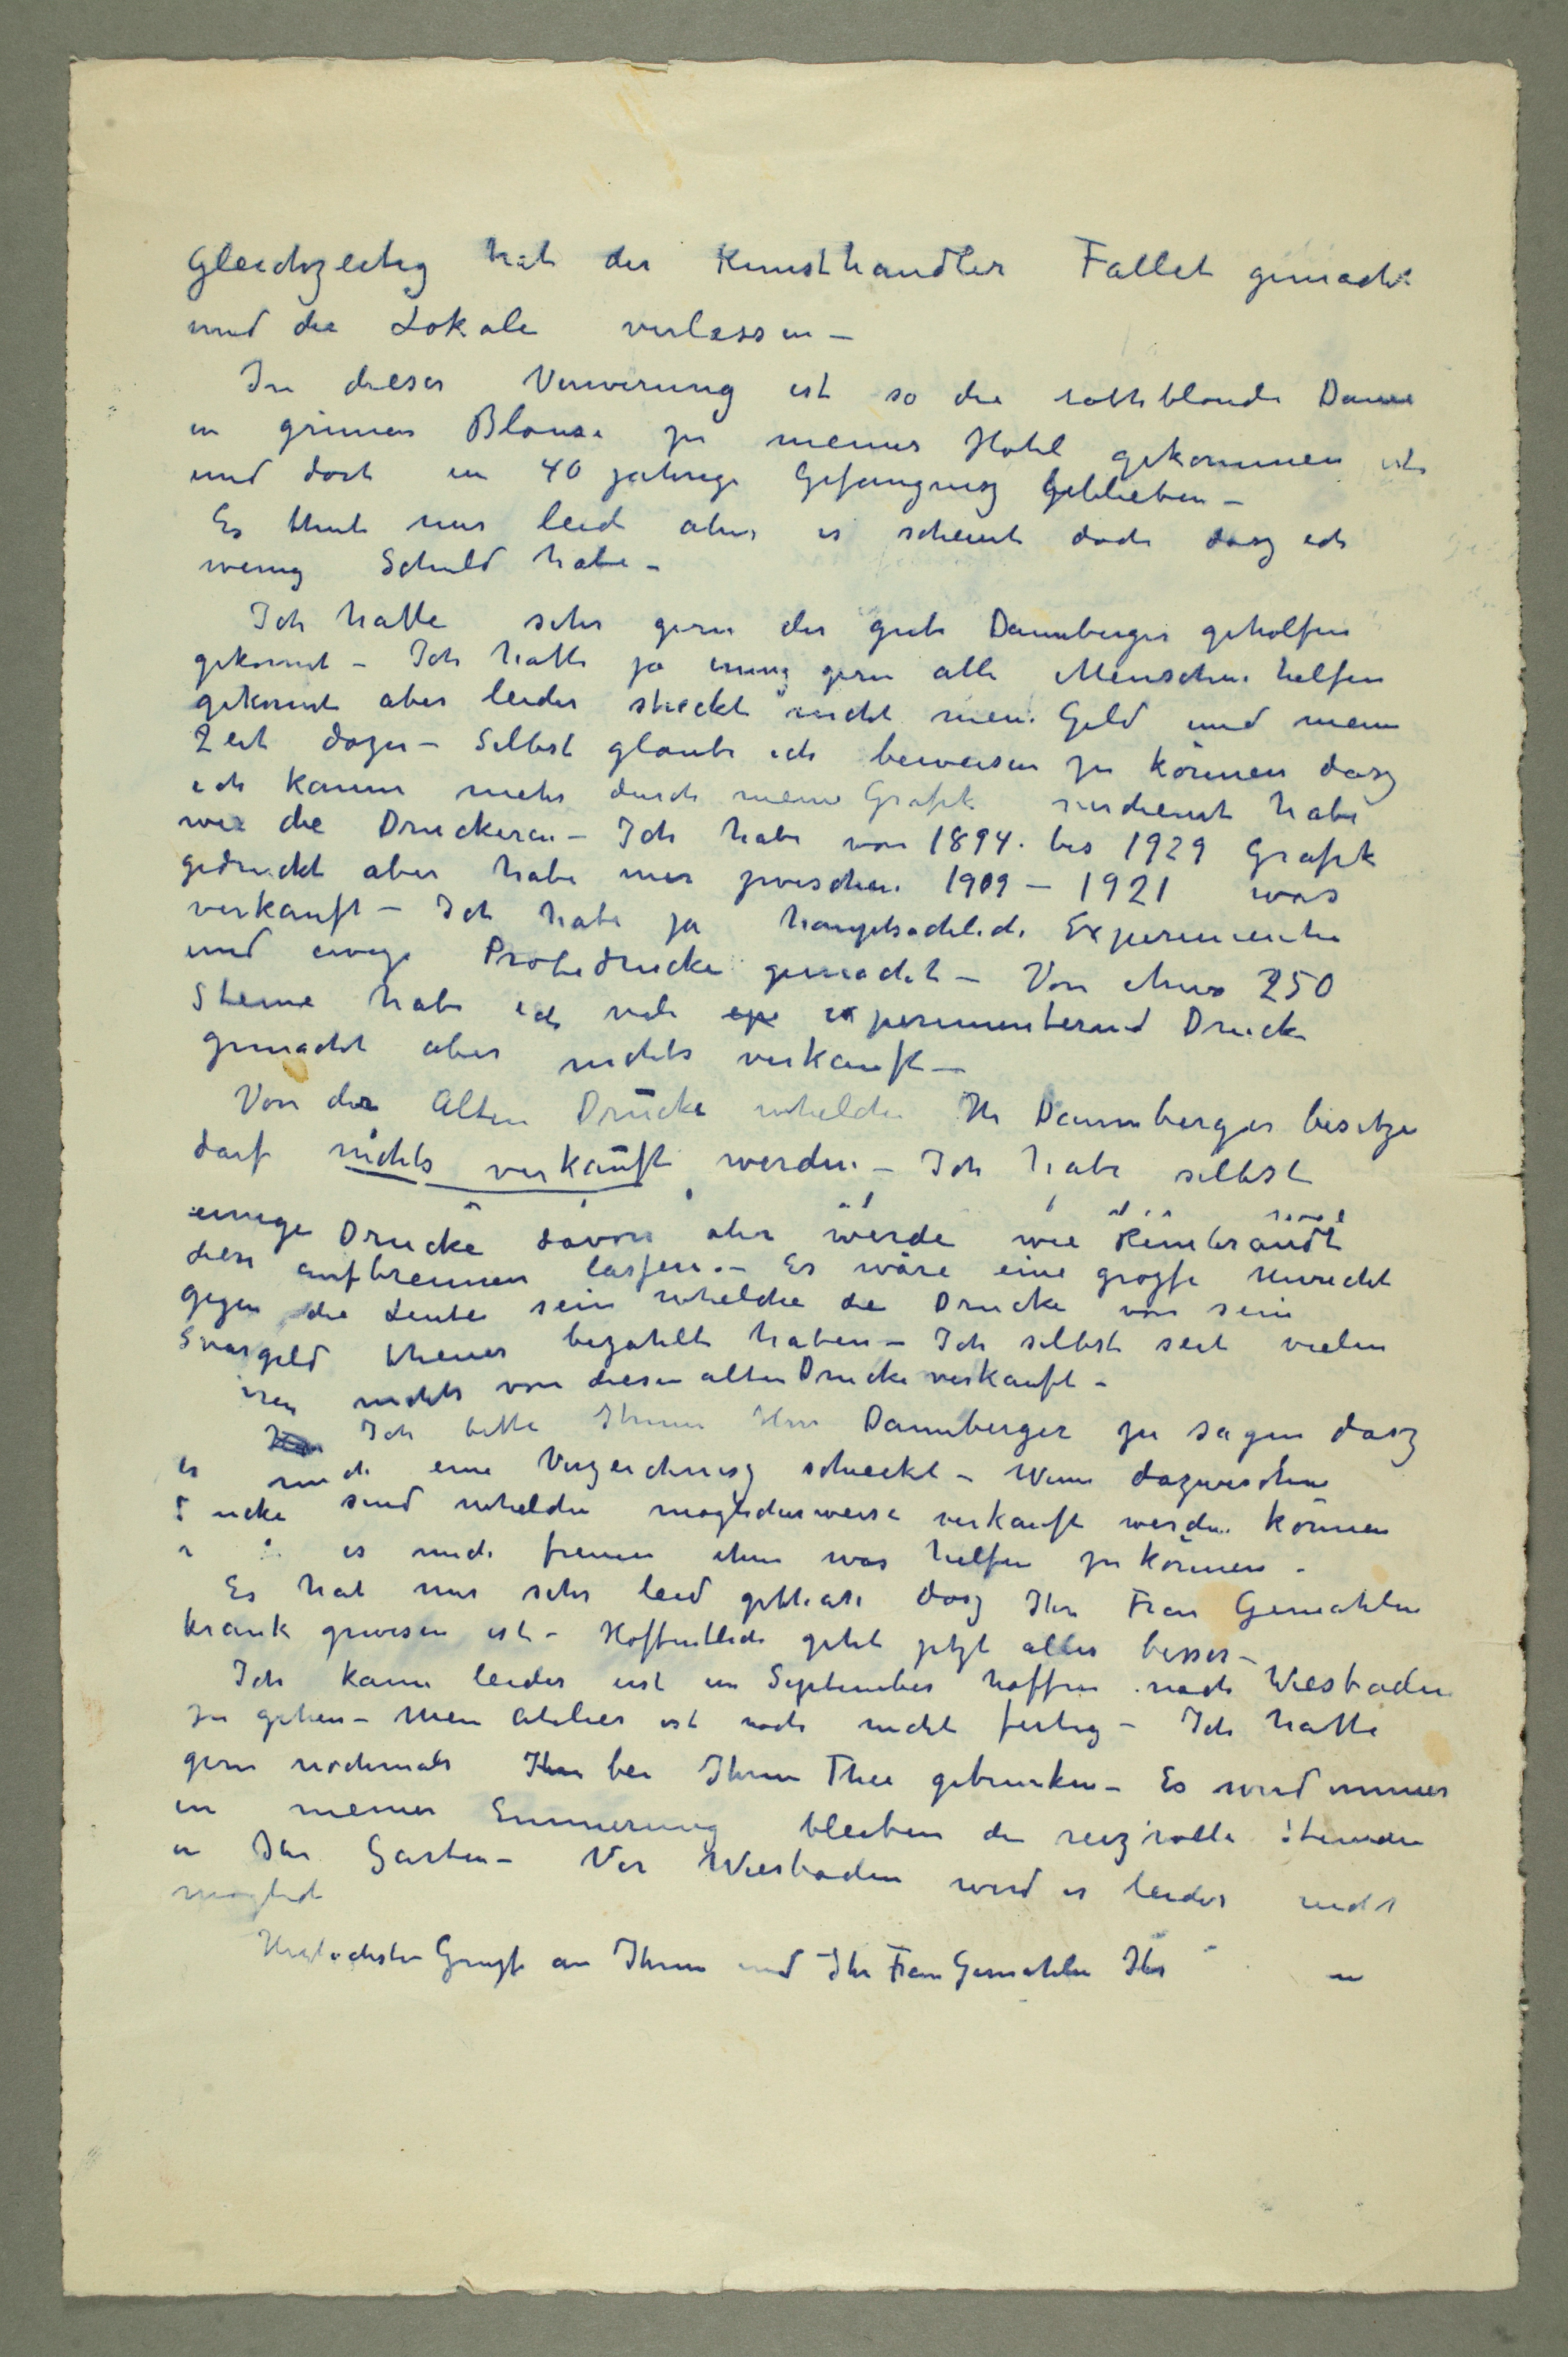 Gleichzeitig hat der Kunsthandler Fallet gemacht
und die Lokale verlassen –
In dieser Verwirung ist so die rothblonde Dame
in grüner Blouse zu meiner Hotel gekommen
und dort in 40 jahrige Gefangnisz geblieben –
Es thut mir leid aber es scheint doch dasz ich
wenig Schuld habe –
Ich hatte sehr gern der gute Dannberger geholfen
gekonnt – Ich hatte ja gern alle Menschen helfen
gekonnt aber leider streckt nicht mein Geld und mein
Zeit dazu – Selbst glaube ich beweisen zu können dasz
ich kaum mehr durch meine Grafik verdient habe
wie die Druckerei – Ich habe von 1894 bis 1929 Grafik
gedruckt aber habe nur zwischen 1909 – 1921 was
verkauft – Ich habe ja hauptsachlich Experimente
und einige Probedrucke gemacht – Von etwa 250
Steine habe ich viele experimenterend Drucke
gemacht aber nichts verkauft –
Von der Alten Drücke whelche Hr Dannberger besitze
darf nichts verkauft werden – Ich habe selbst
einige Drucke davon aber werde wie Rembrandt
diese aufbrennen lassen – Es wäre eine groszse Unrecht
gegen die Leute sein whelche die Drucke von sein
Svargeld theuer bezahlt haben – Ich selbst seit vielen
nichts von diesen alten Drucke verkauft –
Ich bitte Ihnen Herr Dannberger zu sagen dasz
er mich eine Verzeichnisz schickt – Wenn dazwischen
sind whelche moglicherweise verkauft werden können
es mich freuen ihm was helfen zu können –
Es hat mir sehr leid gethan dasz Ihr Frau Gemahlin
krank gewesen ist – Hoffentlich gehet jetzt alles besser –
Ich kann leider erst im September hoffen nach Wiesbaden
zu gehen – Mein Atelier ist noch nicht fertig – Ich hatte
gern nochmals bei Ihnen Thee getrunken – Es wird immer
in meiner Erinnerung bleiben die reizvolle Stunden
in Ihr Garten – Vor Wiesbaden wird es leider nicht
moglich
Herzlichsten Gruszse an Ihnen und Ihr Frau Gemahlin Ihr